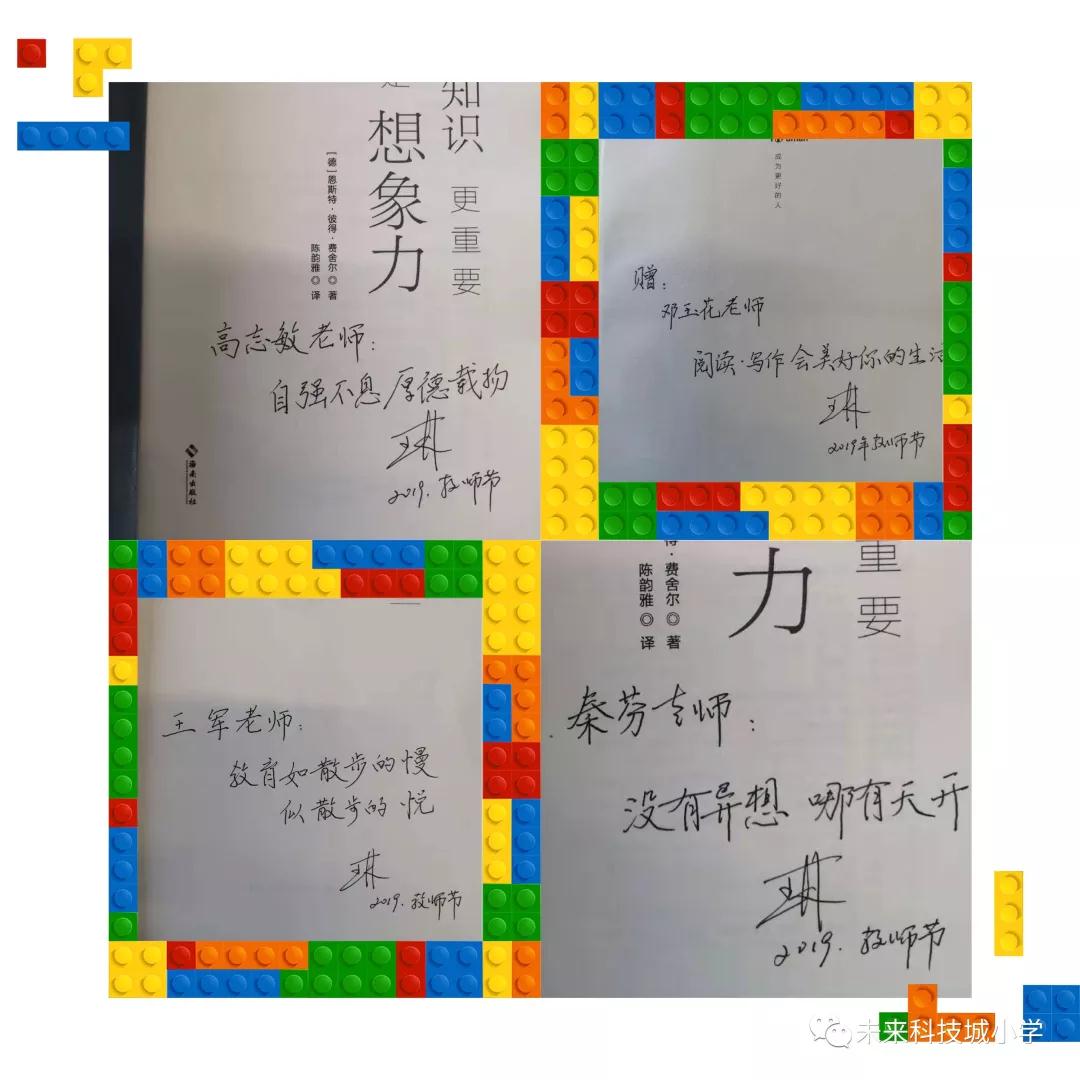 知识
想象力
更重要
[德]恩斯特·彼得·费舍尔◎著
陈韵雅◎译
高志敏老师:
自强不息 厚德载物
琳
2019.教师节
海南出版社
成为更好的人
赠:
邓玉花老师
阅读·写作会美好你的生活
琳
2019年教师节
王军老师:
教育如散步的慢
似散步的悦
琳
2019.教师节
力
重要
费舍尔◎著
陈韵雅◎译
秦芳老师:
没有异想 哪有天开
琳
2019.教师节
未来科技城小学